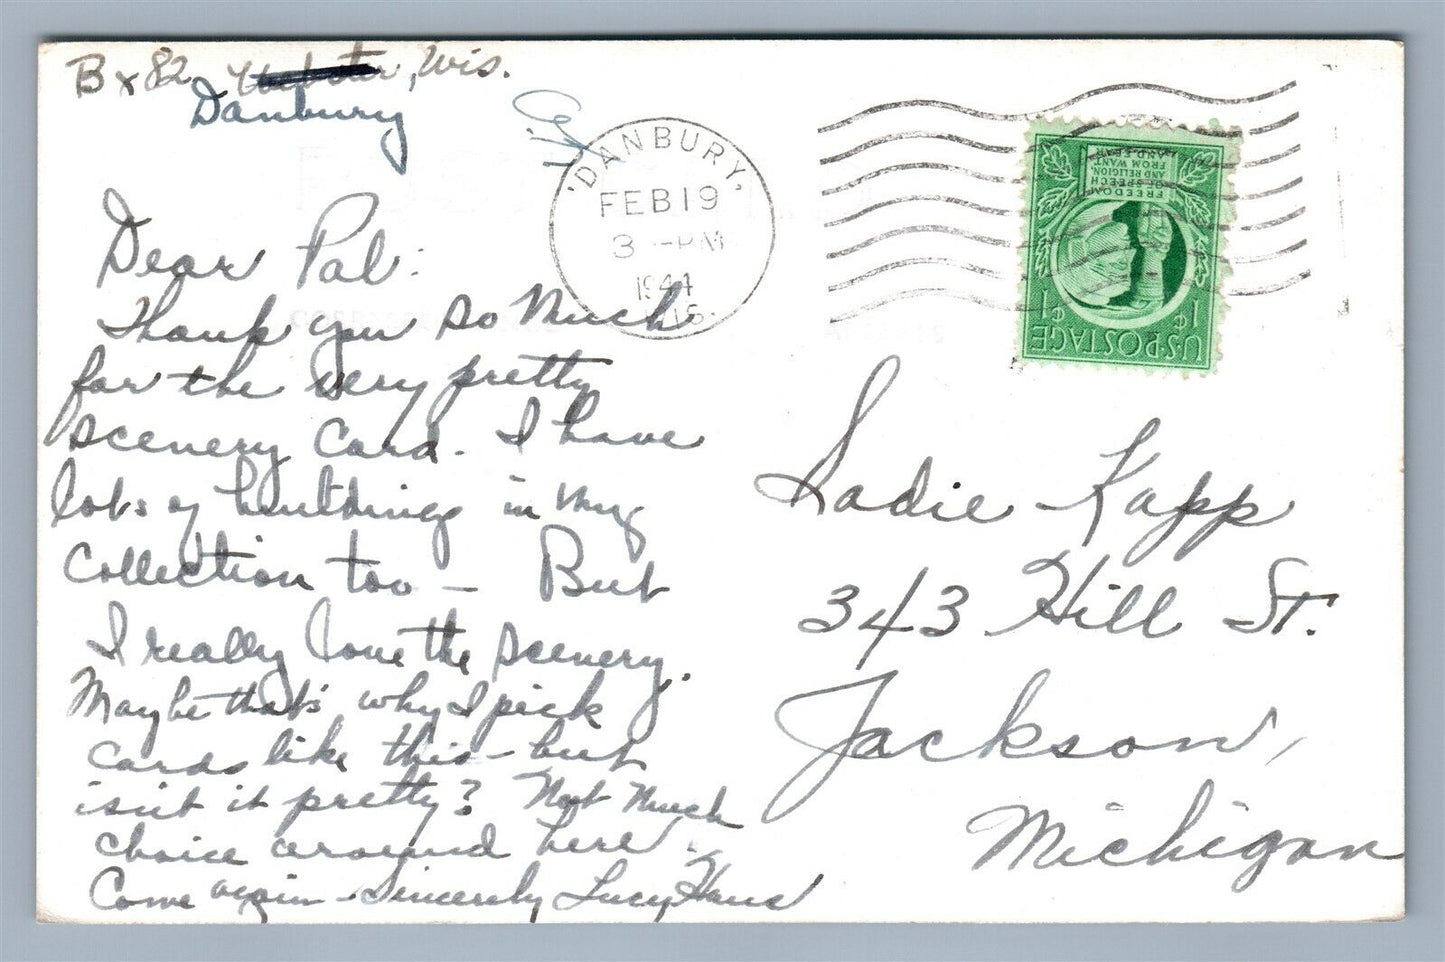 Bx 82 Webster, Wis.
Danbury
DANBURY,
FEB 19
3 - PM
1944
WIS.
FREEDOM
OF SPEECH
AND RELIGION,
FROM WANT
AND FEAR
1¢ 1¢
U.S. POSTAGE
Dear Pal:
Thank you so Much
for the very pretty
scenery Card. I have
lots of buildings in my
Collection too - But
I really love the scenery.
Maybe that's why I pick
cards like this - but
isn't it pretty? Not Much
choice around here.
Come again - Sincerely Lucy Haus
Sadie Kapp
343 Hill St.
Jackson,
Michigan